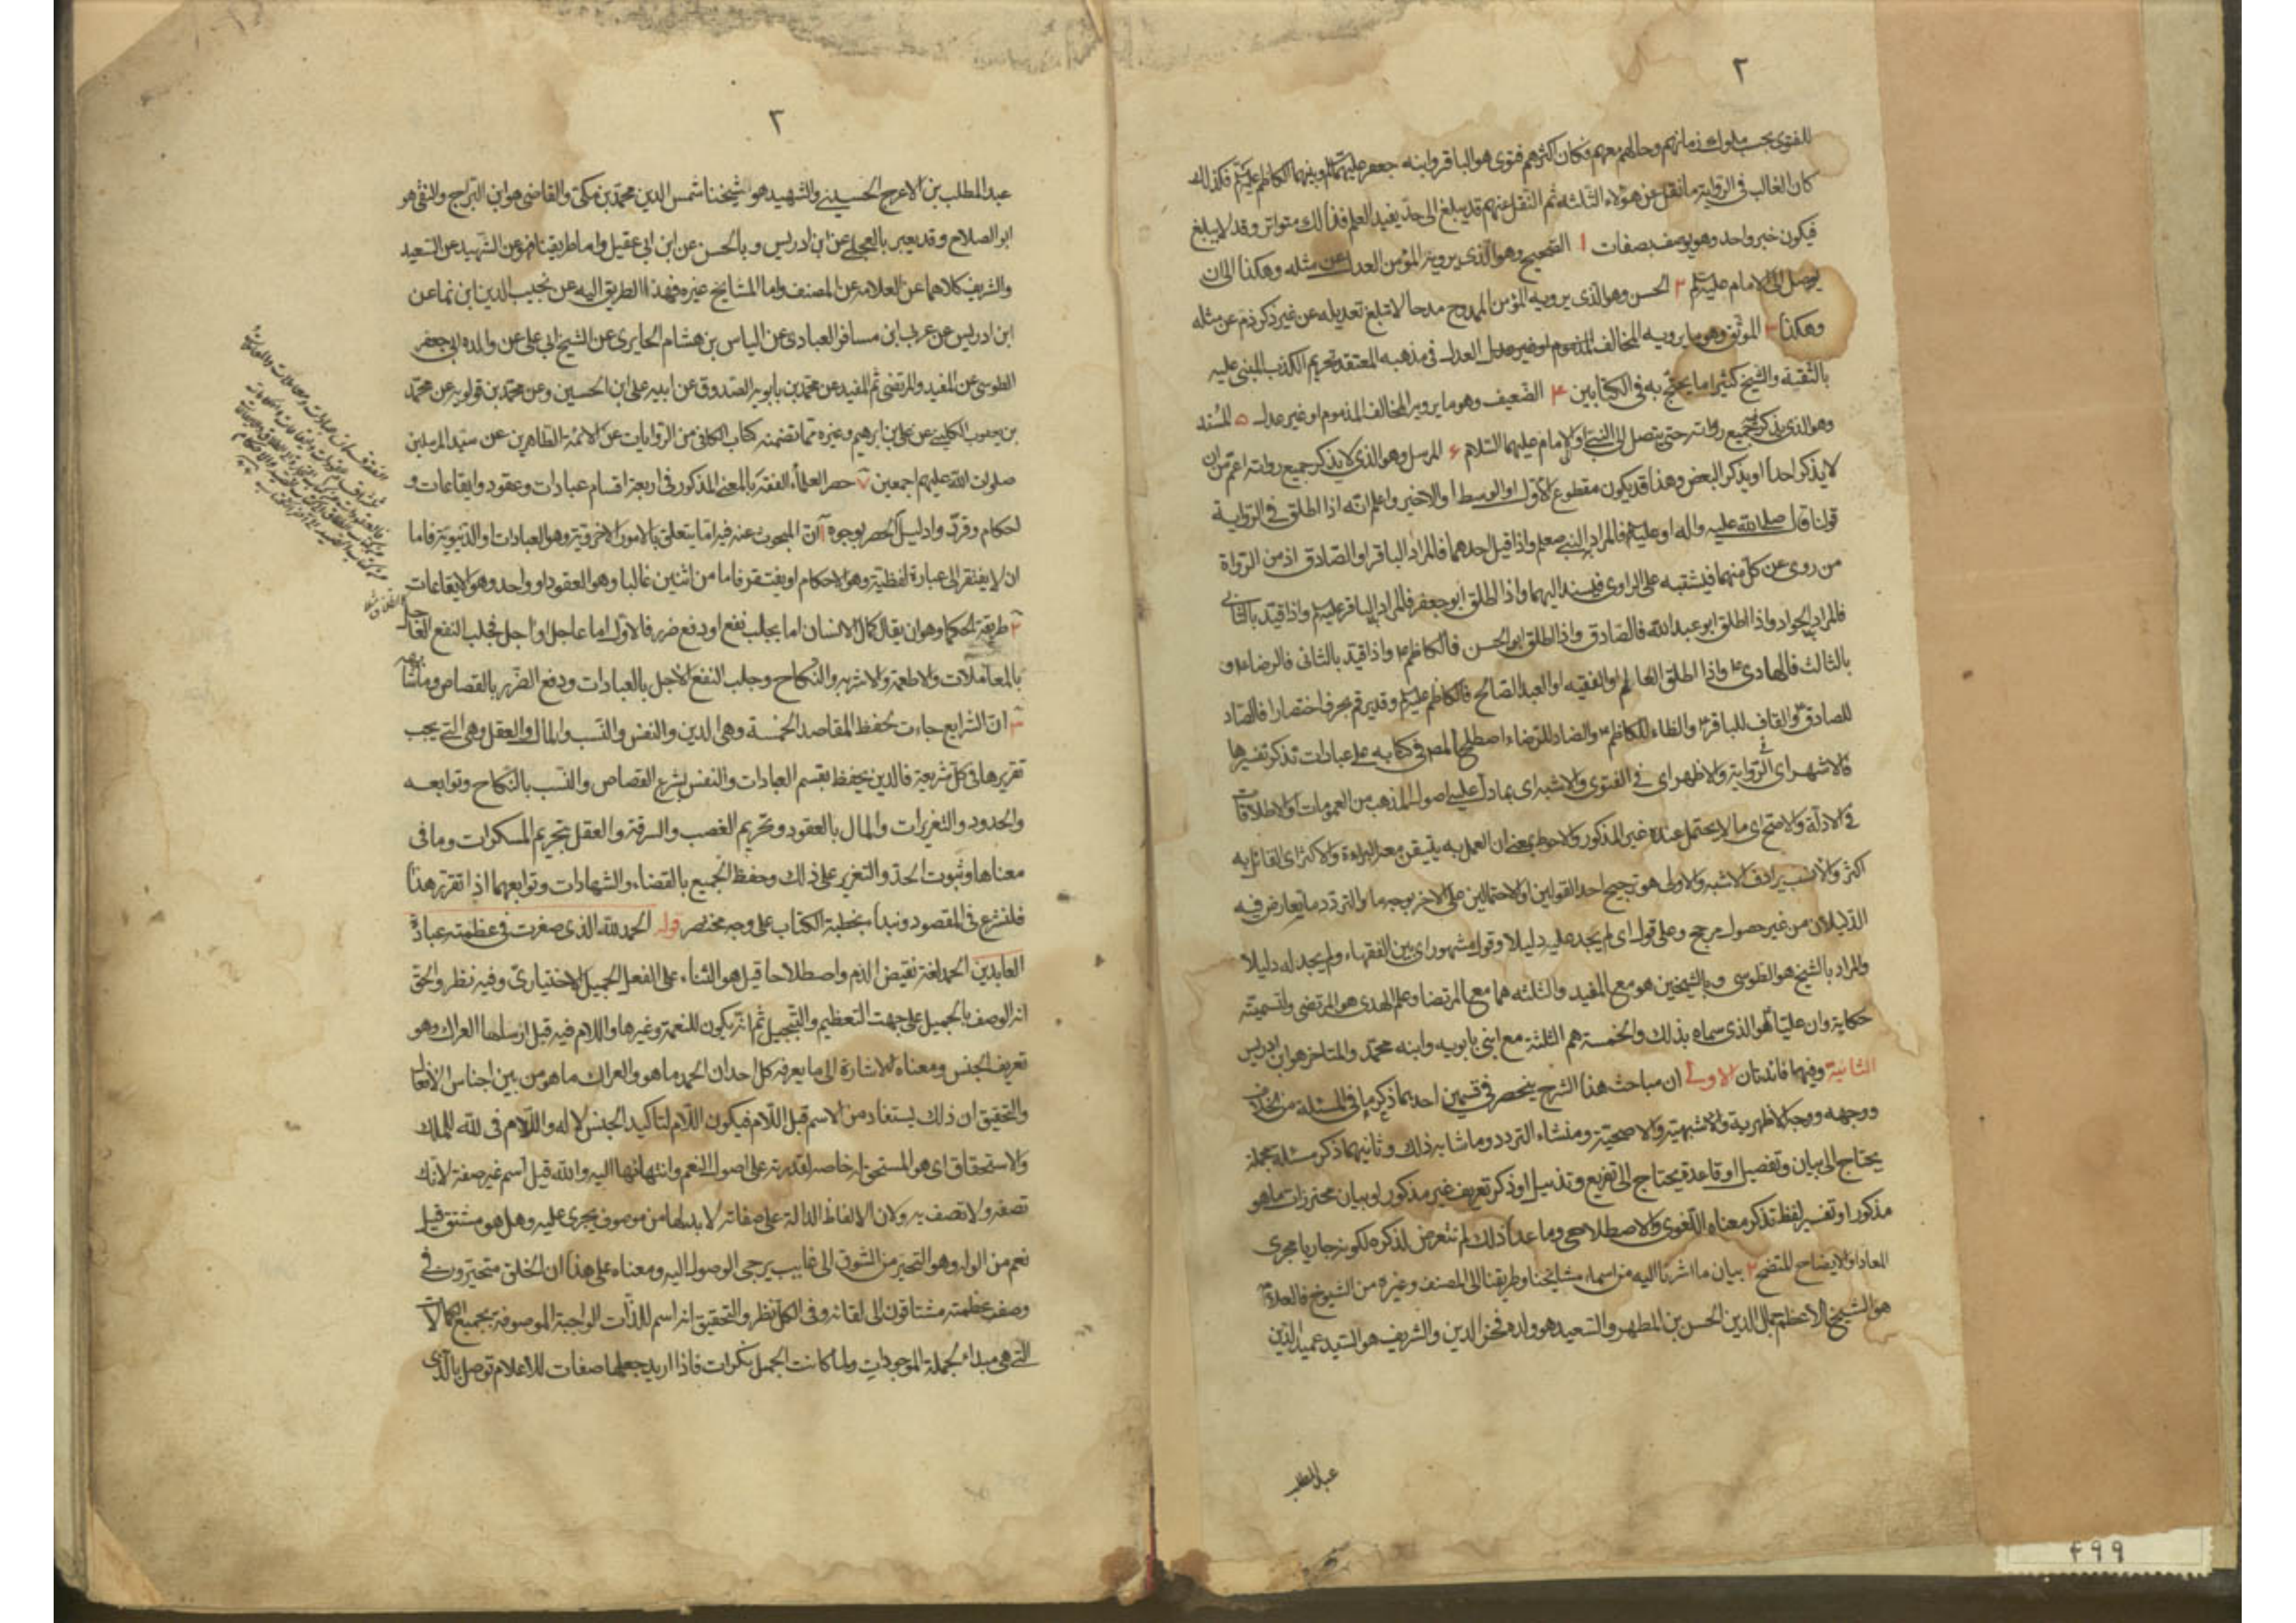 ٢
للفتوى بحسب ملوك زمانهم وحالهم معهم فكان اكثرهم فتوى هو الباقر وابنه جعفر عليهما السلم وبينهما الكاظم عليه السلم فكذلك
كان الغالب فى الرواية ما نقل عن هؤلاء الثلثه ثم النقل عنهم قد يبلغ الى حد يفيد العلم فذلك متواتر وقد لا يبلغ
فيكون خبر واحد وهو يوصف بصفات ١ الصحيح وهو الذى يرويه المؤمن العدل عن مثله وهكذا الى ان
يوصل الى الامام عليه السلم ٢ الحسن وهو الذى يرويه المؤمن الممدوح مدحا لا تبلغ تعديله عن غير ذكر ذم عن مثله
وهكذا ٣ الموثق وهو ما يرويه المخالف المذموم او غير عدل العدل فى مذهبه المعتقد تحريم الكذب المبنى عليه
بالثقية والشيخ كثيرا ما يحتج به فى الكتابين ۴ الضعيف وهو ما يرويه المخالف المذموم او غير عدل ۵ المسند
وهو الذى يذكر جميع رواته حتى يتصل الى النبى او الامام عليهما السلام ۶ المرسل وهو الذى لا يذكر جميع رواته اعم من ان
لا يذكر احدا او يذكر البعض وهذا قد يكون مقطوع الاول او الوسط او الاخير واعلم انه اذا اطلق فى الرواية
قولنا قال صلى الله عليه واله او عليه السلم فالمراد النبى صعلم واذا قيل احدهما فالمراد الباقر او الصادق اذ من الرواة
من روى عن كل منهما فيشتبه على الراوى فيسند اليهما واذا اطلق ابو جعفر فالمراد الباقر عليه السلم واذا قيد بالثانى
فالمراد الجواد واذا اطلق ابو عبد الله فالصادق واذا اطلق ابو الحسن فالكاظم ع واذا قيد بالثانى فالرضا ع و
بالثالث فالهادى ع واذا اطلق العالم او الفقيه او العبد الصالح فالكاظم عليه السلم وقد يرقم بحرف اختصارا فالصاد
للصادق والقاف للباقر ع والظاء للكاظم ع والضاد للرضا ع اصطلح المص فى كتابه على عبارات تذكر تفسيرها
فالاشهر اى فى الرواية والاظهر اى فى الفتوى والاشبه اى بما دل عليه اصول المذهب من العمومات او الاطلاقات
فى الادلة والاصح اى ما لا يحتمل عنده غير المذكور والاحوط بمعنى ان العمل به يتيقن معه البراءة والاكثر اى القائل به
اكثر والانسب يرادف الاشبه والاولى هو ترجيح احد القولين او الاحتمالين على الاخر بوجه ما والتردد ما يعارض فيه
الدليلان من غير حصول مرجح وعلى قول اى لم يجد عليه دليلا وقول مشهور اى بين الفقهاء ولم يجد له دليلا
والمراد بالشيخ هو الطوسى وبالشيخين هو مع المفيد والثلثه هما مع المرتضا وعلم الهدى هو المرتضى ولتسميته
حكاية وان عليا هو الذى سماه بذلك والخمسة هم الثلثة مع ابنى بابويه وابنه محمد والمتاخر هو ابن ادريس
الثانية وفيها فائدتان الاولى ان مباحث هذا الشرح ينحصر فى قسمين احدهما ذكر ما فى المسئلة من الخلاف
ووجهه ووجه الاظهرية والاشبهية والاصحية ومنشاء التردد وما شابه ذلك وثانيهما ذكر مسئلة مجملة
يحتاج الى بيان وتفصيل او قاعدة يحتاج الى تفريع وتذييل او ذكر تعريف غير مذكور او بيان محترزات ما هو
مذكور او تفسير لفظ تذكر معناه اللغوى والاصطلاحى وما عدا ذلك لم نتعرض لذكره لكونه جاريا مجرى
المعاد او الايضاح للمتضح ٢ بيان ما اشرنا اليه من اسماء مشايخنا وطريقنا الى المصنف وغيره من الشيوخ فالعلامة
هو الشيخ الاعظم جمال الدين الحسن بن المطهر والسعيد هو ولده فخر الدين والشريف هو السيد عميد الدين
عبد المطلب
٣
عبد المطلب بن الاعرج الحسينى والشهيد هو شيخنا شمس الدين محمد بن مكى والقاضى هو ابن البراج والتقى هو
ابو الصلاح وقد يعبر بالعجلى عن ابن ادريس وبالحسن عن ابن ابى عقيل واما طريقنا فهو عن الشهيد عن السعيد
والشريف كلاهما عن العلامة عن المصنف واما المشايخ غيره فهذا الطريق اليه عن نجيب الدين ابن نما عن
ابن ادريس عن عربى ابن مسافر العبادى عن الياس بن هشام الحايرى عن الشيخ ابى على عن والده ابى جعفر
الطوسى عن المفيد والمرتضى ثم المفيد عن محمد بن بابويه الصدوق عن ابيه على ابن الحسين وعن محمد بن قولويه عن محمد
بن يعقوب الكلينى عن على بن ابرهيم وغيره مما تضمنه كتاب الكافى من الروايات عن الائمة الطاهرين عن سيد المرسلين
صلوات الله عليهم اجمعين ٧ حصر العلماء الفقه بالمعنى المذكور فى اربعة اقسام عبادات وعقود وايقاعات و
احكام وقرر وا دليل الحصر بوجوه ١ ان المبحوث عنه فيه اما يتعلق بالامور الاخروية وهو العبادات او الدنيوية فاما
ان لا يفتقر الى عبارة لفظية وهو الاحكام او يفتقر فاما من اثنين غالبا وهو العقود او واحد وهو الايقاعات
٢ طريقة الحكما وهو ان يقال كمال الانسان اما يجلب نفع او دفع ضرر فالاول اما عاجل او اجل فجلب النفع العاجل
بالمعاملات والاطعمة والاشربه والنكاح وجلب النفع الاجل بالعبادات ودفع الضرر بالقصاص وما شابهه
٣ ان الشرايع جاءت لحفظ المقاصد الخمسة وهى الدين والنفس والنسب والمال والعقل وهى التى يجب
تقريرها فى كل شريعة فالدين يحفظ بقسم العبادات والنفس بشرع القصاص والنسب بالنكاح وتوابعه
والحدود والتعزيرات والمال بالعقود وتحريم الغصب والسرقة والعقل بتحريم المسكرات وما فى
معناها وثبوت الحد والتعزير على ذلك وحفظ الجميع بالقضاء والشهادات وتوابعهما اذا تقرر هذا
فلنشرع فى المقصود ونبدا بخطبة الكتاب على وجه مختصر قوله الحمد لله الذى صغرت فى عظمته عبادة
العابدين الحمد لغة نقيض الذم واصطلاحا قيل هو الثناء على الفعل الجميل الاختيارى وفيه نظر والحق
انه الوصف بالجميل على جهت التعظيم والتبجيل ثم انه يكون للنعمة وغيرها واللام فيه قيل ارسلها العراك وهو
تعريف الجنس ومعناه الاشارة الى ما يعرفه كل احد ان الحمد ما هو والعراك ما هو من بين اجناس الافعال
والتحقيق ان ذلك يستفاد من الاسم قبل اللام فيكون اللام لتاكيد الجنس لا له واللام فى لله للملك
والاستحقاق اى هو المستحق له خاصه لقدرته على اصول النعم وانتهائها اليه والله قيل اسم غير صفة لانك
تصفه ولا تصف به ولان الالفاظ الدالة على صفاته لا بد لها من موصوف يجرى عليه وهل هو مشتق قيل
نعم من الوله وهو التحير من الشوق الى غايب يرجى الوصول اليه ومعناه على هذا ان الخلق متحيرون فى
وصف عظمته مشتاقون الى لقائه وفى الكل نظر والتحقيق انه اسم للذات الواجبة الموصوفة بجميع الكمالات
التى هى مبداء لجملة الموجودات ولما كانت الجمل نكرات فاذا اريد جعلها صفات للاعلام توصل بالذى
۴۹۹